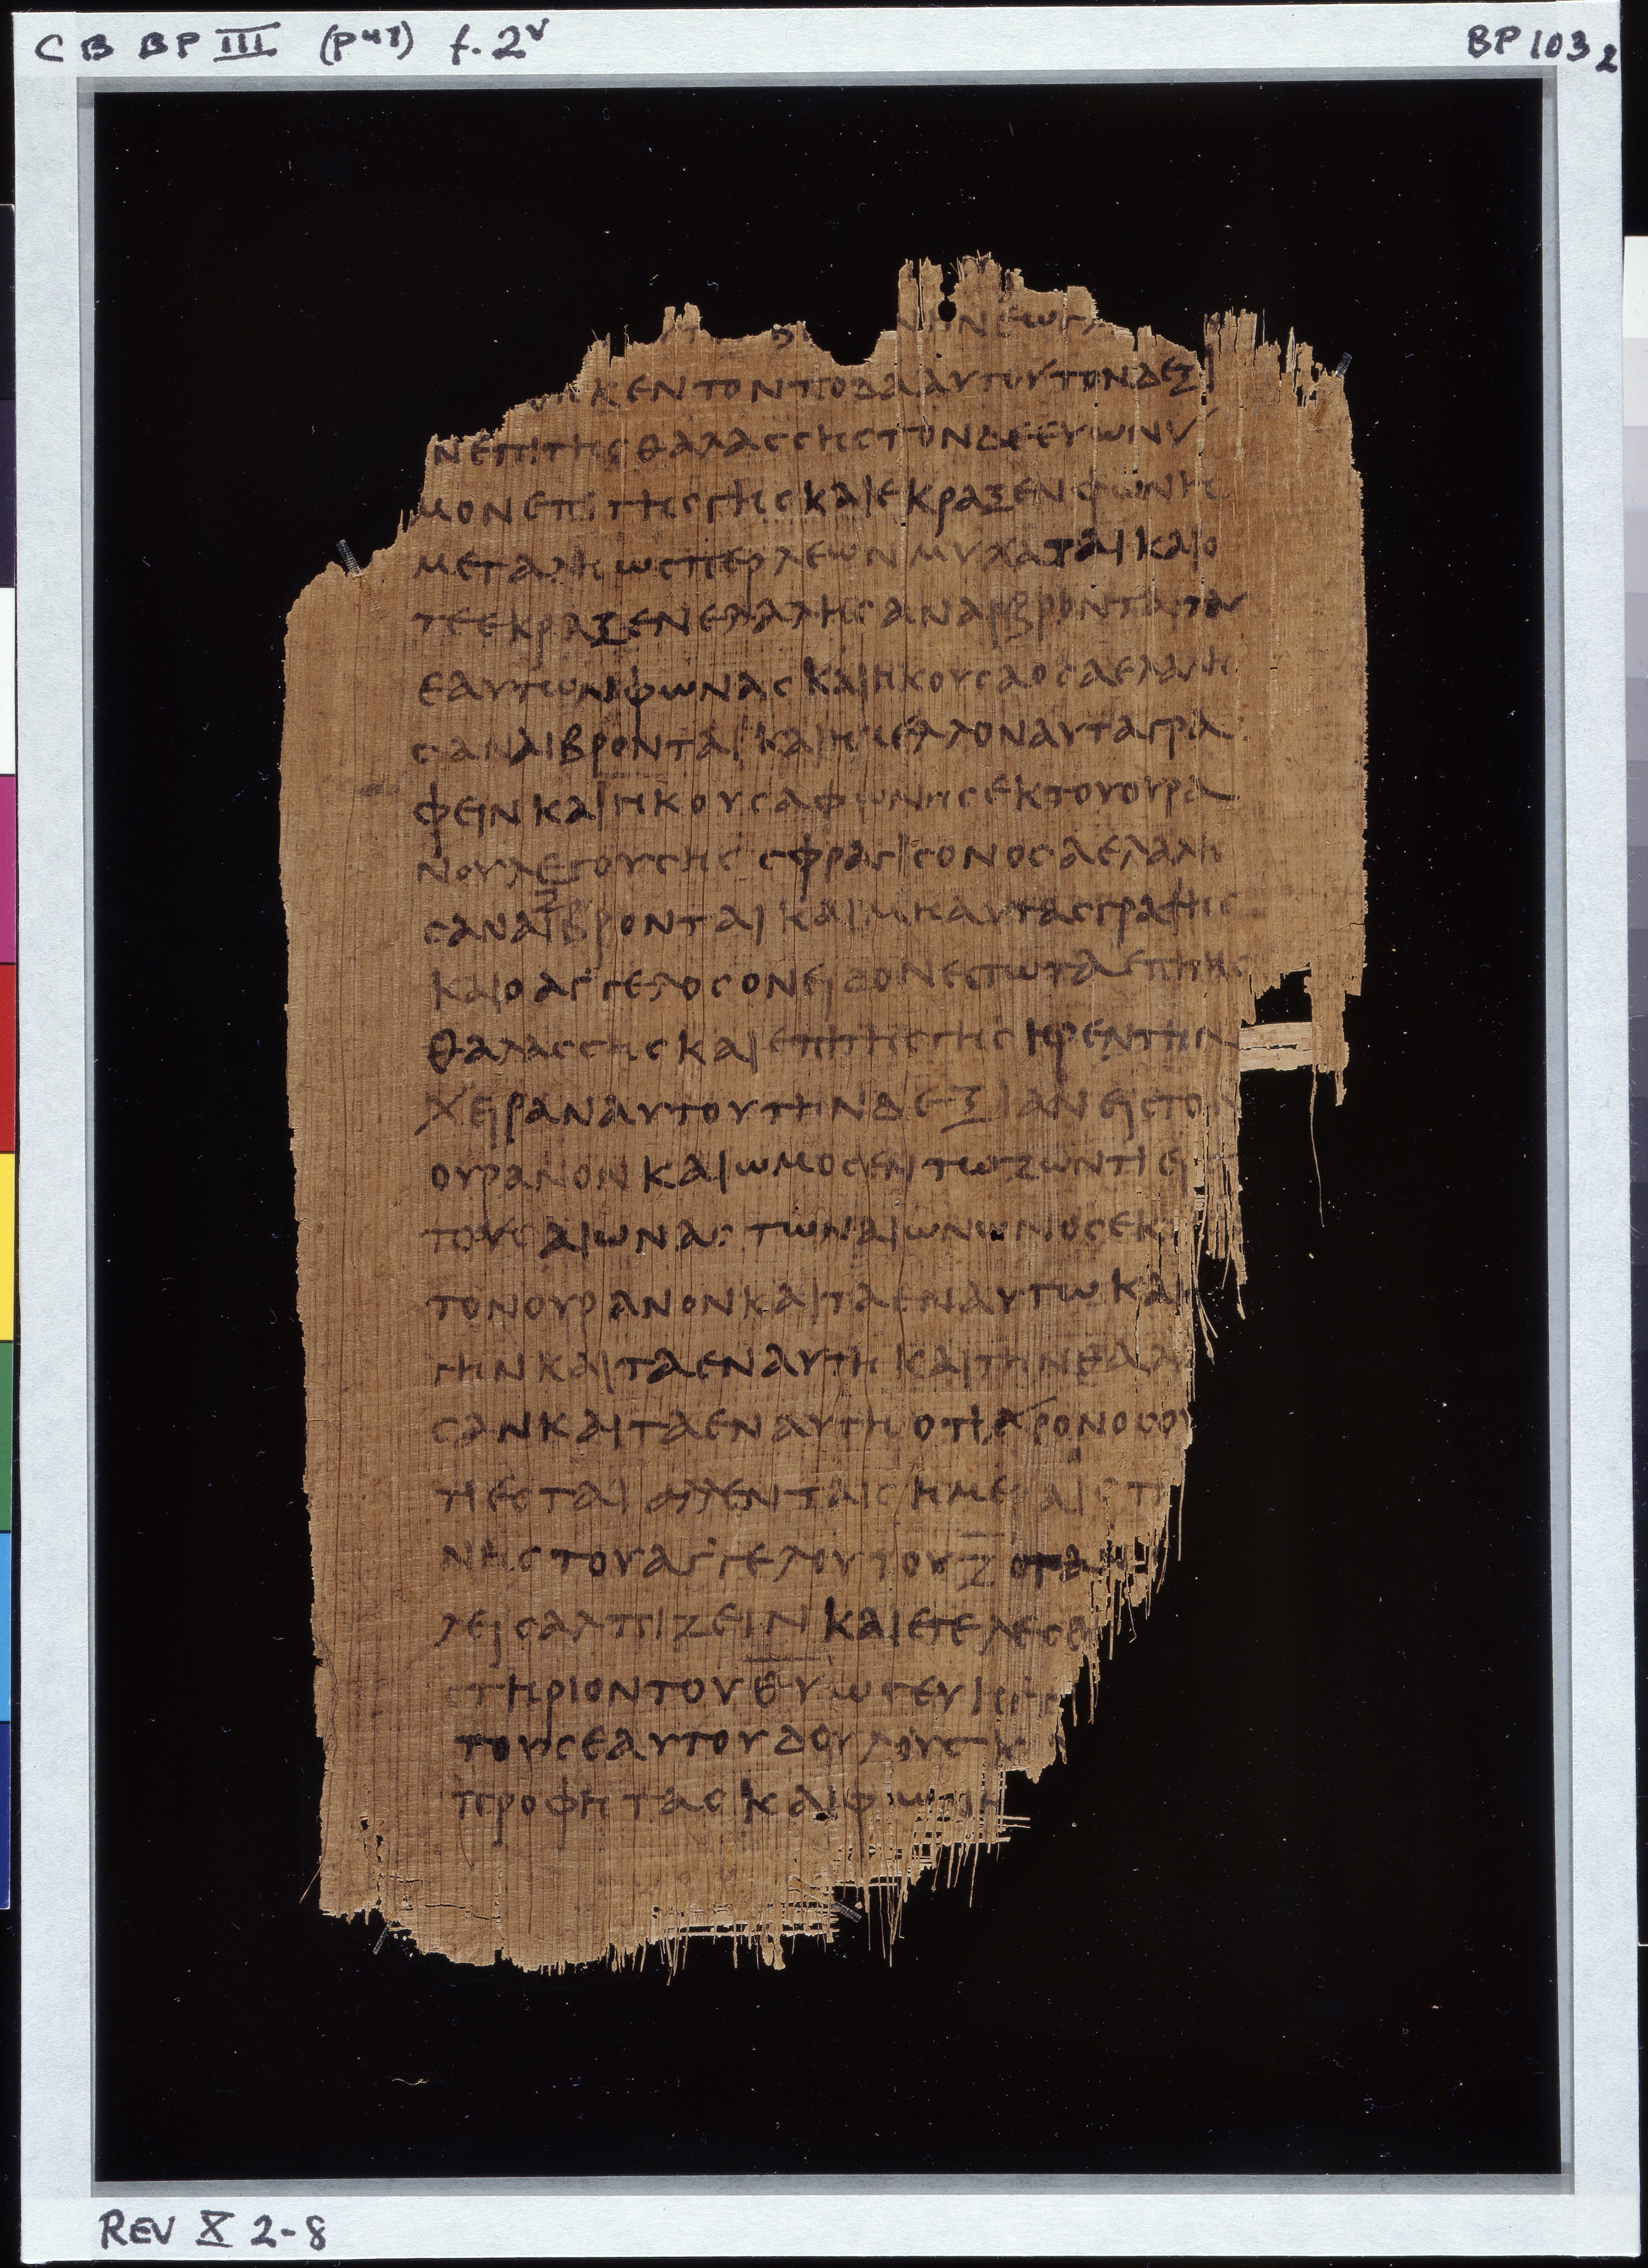 CB BP III (P47) f. 2v
BP 103 2
ΗΝΕΩΓ
ΚΕΝΤΟΝΠΟΔΑΑΥΤΟΥΤΟΝΔΕΞΙ
ΝΕΠΙΤΗςΘΑΛΑςςΗςΤΟΝΔΕΕΥΩΝΥ
ΜΟΝΕΠΙΤΗςΓΗςΚΑΙΕΚΡΑΞΕΝΦΩΝΗ
ΜΕΓΑΛΗΩςΠΕΡΛΕΩΝΜΥΚΑΤΑΙΚΑΙΟ
ΤΕΕΚΡΑΞΕΝΕΛΑΛΗςΑΝΑΙΖΒΡΟΝΤΑΙΤΑΙ
ΕΑΥΤΩΝΦΩΝΑςΚΑΙΗΚΟΥςΑΟςΑΕΛΑΛΗ
ςΑΝΑΙΒΡΟΝΤΑΙΚΑΙΗΜΕΛΛΟΝΑΥΤΑΓΡΑ
ΦΕΙΝΚΑΙΗΚΟΥςΑΦΩΝΗςΕΚΤΟΥΟΥΡΑ
ΝΟΥΛΕΓΟΥςΗςςΦΡΑΓΙςΟΝΟςΑΕΛΑΛΗ
ςΑΝΑΙΖΒΡΟΝΤΑΙΚΑΙΜΗΑΥΤΑςΓΡΑΨΗς
ΚΑΙΟΑΓΓΕΛΟςΟΝΕΙΔΟΝΕςΤΩΤΑΕΠΙΤΗς
ΘΑΛΑςςΗςΚΑΙΕΠΙΤΗςΓΗςΗΡΕΝΤΗΝ
ΧΕΙΡΑΝΑΥΤΟΥΤΗΝΔΕΞΙΑΝΕΙςΤΟΝ
ΟΥΡΑΝΟΝΚΑΙΩΜΟςΕΝΤΩΖΩΝΤΙΕΙς
ΤΟΥςΑΙΩΝΑςΤΩΝΑΙΩΝΩΝΟςΕΚ
ΤΟΝΟΥΡΑΝΟΝΚΑΙΤΑΕΝΑΥΤΩΚΑΙ
ΓΗΝΚΑΙΤΑΕΝΑΥΤΗΚΑΙΤΗΝΘΑΛΑ
ςΑΝΚΑΙΤΑΕΝΑΥΤΗΟΤΙΧΡΟΝΟςΟΥ
ΤΙΕςΤΑΙΑΛΛΕΝΤΑΙςΗΜΕΡΑΙςΤΗ
ΝΗςΤΟΥΑΓΓΕΛΟΥΤΟΥΖΟΤΑΝ
ΛΕΙςΑΛΠΙΖΕΙΝΚΑΙΕΤΕΛΕςΘ
ςΤΗΡΙΟΝΤΟΥΘΥΩςΕΥΗΓΓΕ
ΤΟΥςΕΑΥΤΟΥΔΟΥΛΟΥςΚ
ΠΡΟΦΗΤΑςΚΑΙΦΩΝΗ
REV X 2-8